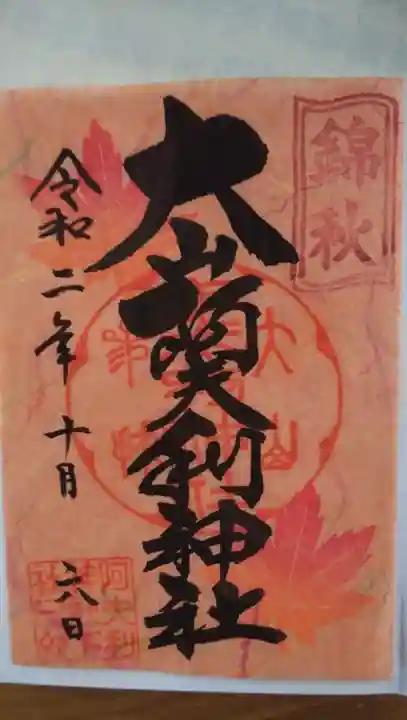 錦秋
大山阿夫利神社
令和二年十月六日
阿夫利